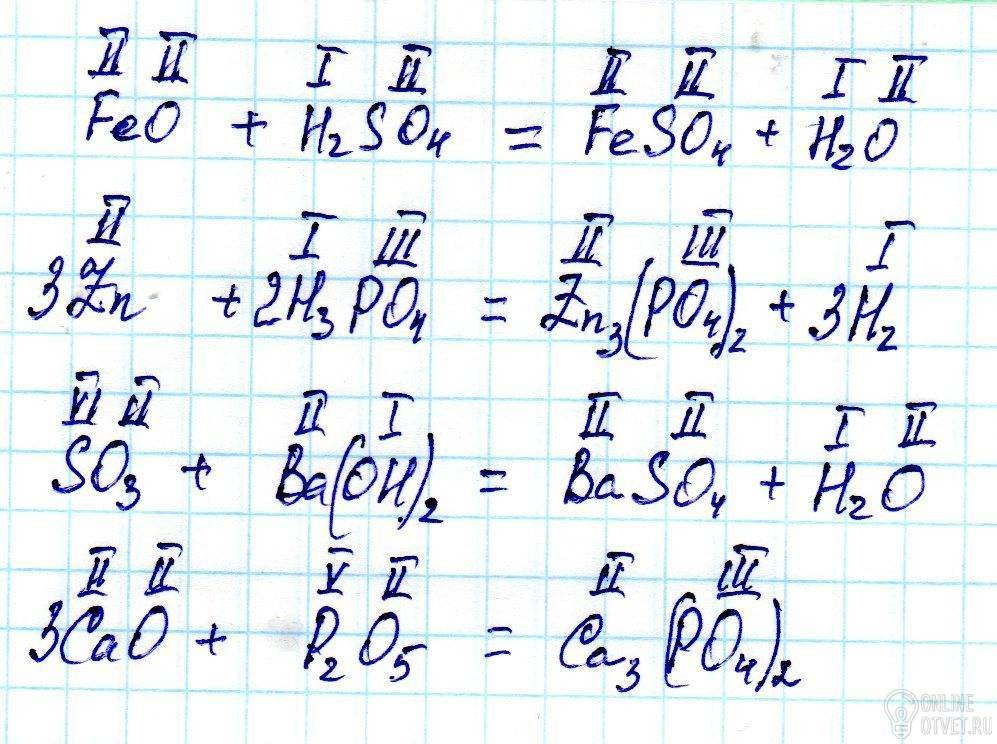 II II I II II II I II
FeO + H₂SO₄ = FeSO₄ + H₂O
II I III II III I
3Zn + 2H₃PO₄ = Zn₃(PO₄)₂ + 3H₂
VI II II I II II I II
SO₃ + Ba(OH)₂ = BaSO₄ + H₂O
II II V II II III
3CaO + P₂O₅ = Ca₃(PO₄)₂
ONLINE
OTVET.RU